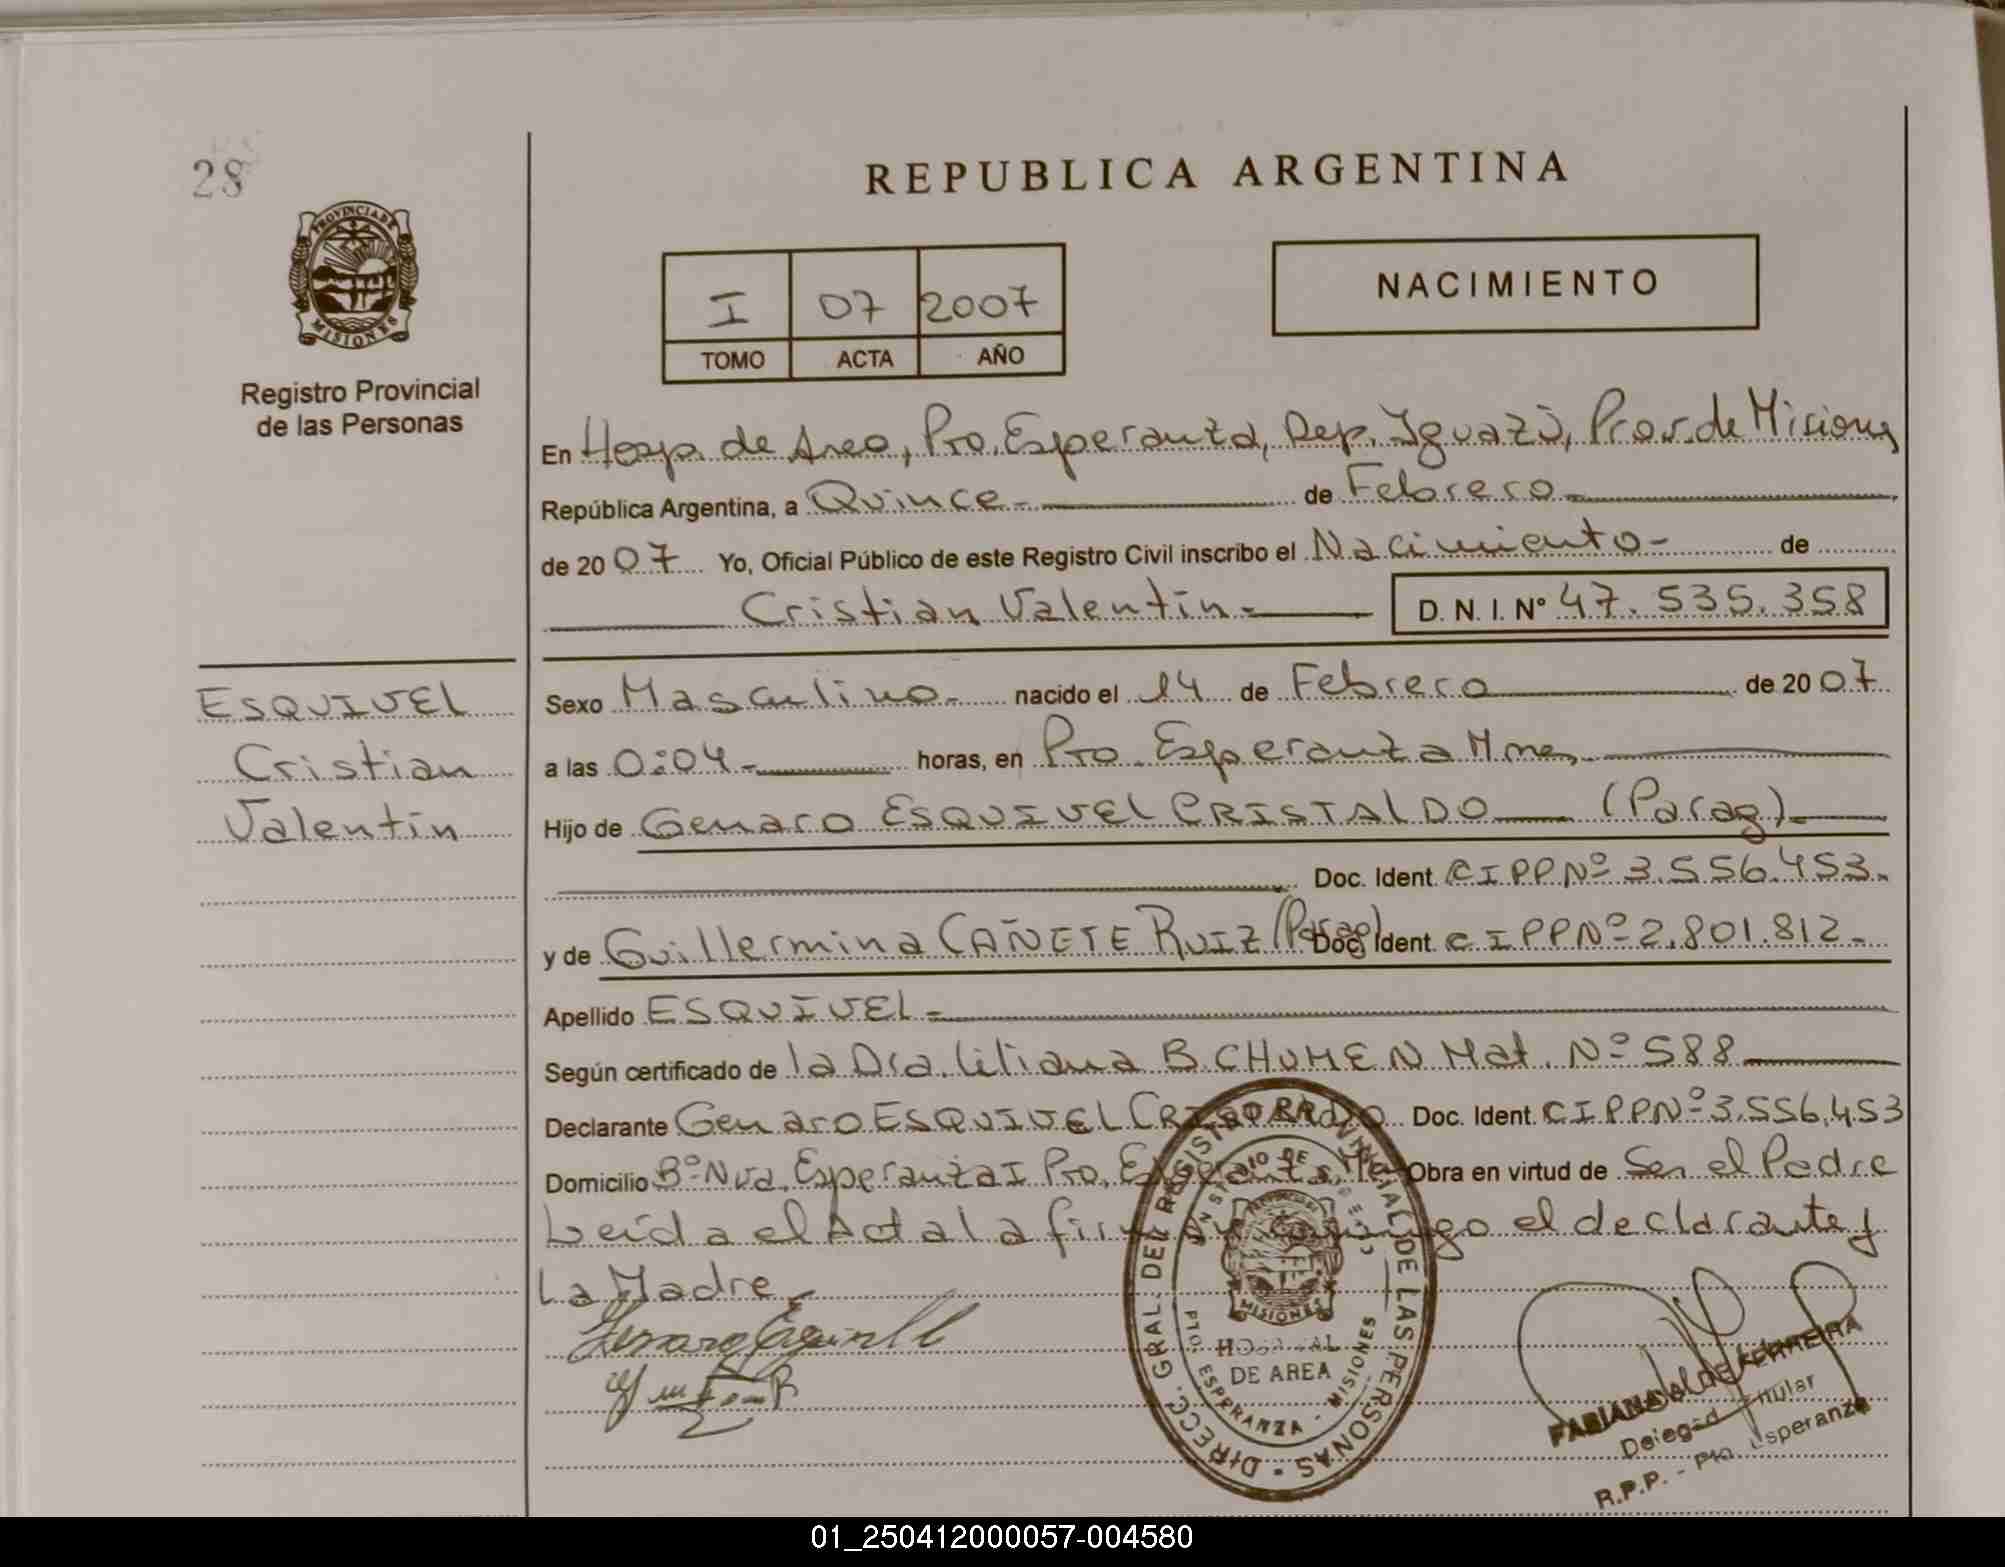 28
REPUBLICA ARGENTINA
PROVINCIA DE
MISIONES
Registro Provincial
de las Personas
I 07 2007
TOMO ACTA AÑO
NACIMIENTO
En Hosp. de Area, Pto. Esperanza, Dep. Iguazú, Prov. de Misiones
República Argentina, a Quince.- de Febrero.-
de 2007 Yo, Oficial Público de este Registro Civil inscribo el Nacimiento- de
Cristian Valentín.- D. N. I. Nº 47.535.358
ESQUIVEL
Cristian
Valentín
Sexo Masculino.- nacido el 14 de Febrero de 2007
a las 0:04.- horas, en Pto. Esperanza Mnes.
Hijo de Genaro ESQUIVEL CRISTALDO (Parag).-
Doc. Ident. CIPPNº 3.556.453.
y de Guillermina CAÑETE RUIZ (Parag) Doc. Ident. CIPPNº 2.801.812.-
Apellido ESQUIVEL.-
Según certificado de la Dra. Liliana B. CHUMEN Mat. Nº 588
Declarante Genaro ESQUIVEL CRISTALDO Doc. Ident. CIPPNº 3.556.453
Domicilio Bº Nva. Esperanza I Pto. Esperanza, Obra en virtud de Ser el Padre
Leída el Acta la firman conmigo el declarante y
La Madre.
DIRECC. GRAL. DEL REGISTRO PROVINCIAL DE LAS PERSONAS
MINISTERIO DE
MISIONES
HOSPITAL
DE AREA
PTO. ESPERANZA - MISIONES
FABIANA DE FERREIRA
Delegada Titular
R.P.P. - Pto. Esperanza
01_250412000057-004580